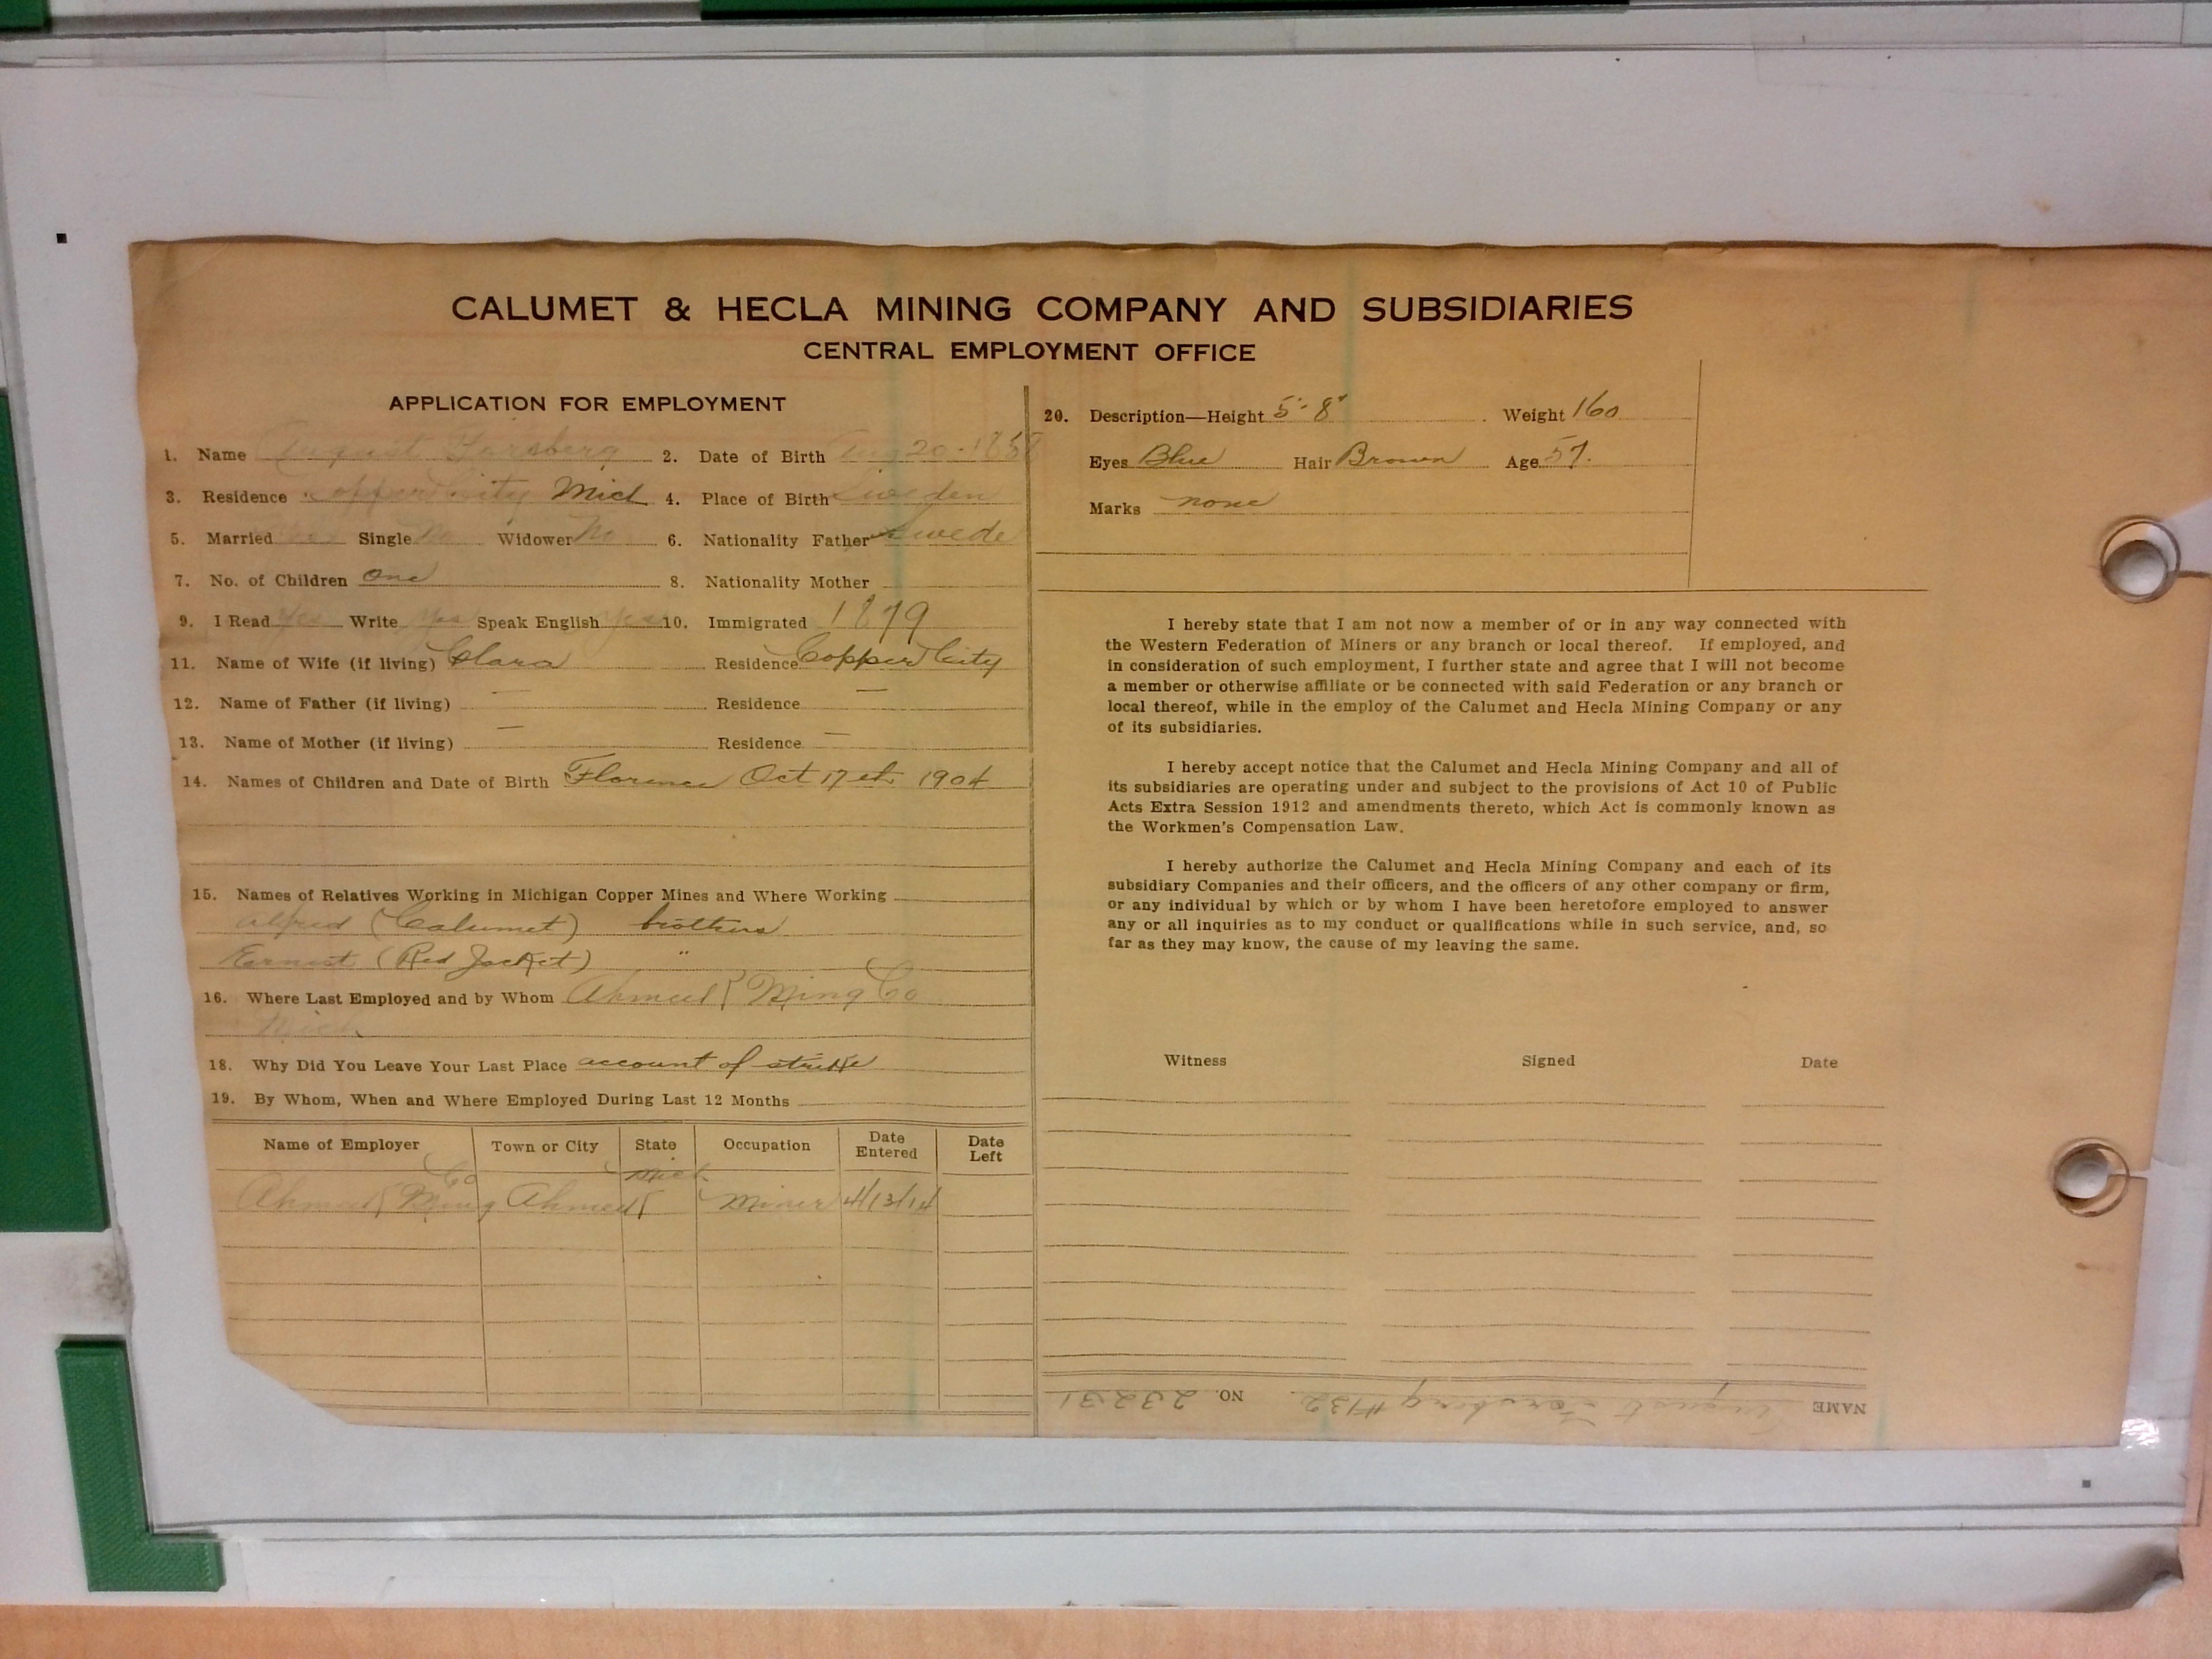 CALUMET & HECLA MINING COMPANY AND SUBSIDIARIES
CENTRAL EMPLOYMENT OFFICE
APPLICATION FOR EMPLOYMENT
1. Name August Forsberg 2. Date of Birth Aug 20-185
3. Residence Copper City Mich 4. Place of Birth Sweden
5. Married Single No Widower No 6. Nationality Father Swede
7. No. of Children One 8. Nationality Mother
9. I Read Yes Write Yes Speak English Yes 10. Immigrated 1879
11. Name of Wife (if living) Clara Residence Copper City
12. Name of Father (if living) — Residence —
13. Name of Mother (if living) — Residence —
14. Names of Children and Date of Birth Florence Oct 17th 1904
15. Names of Relatives Working in Michigan Copper Mines and Where Working
Alfred (Calumet) brothers
Earnest (Red Jacket) "
16. Where Last Employed and by Whom Ahmeek Ming Co
Mich
18. Why Did You Leave Your Last Place account of strike
19. By Whom, When and Where Employed During Last 12 Months
Name of Employer Town or City State Occupation Date Entered Date Left
Ahmeek Ming Co Ahmeek Mich. Miner 4/13/14
20. Description—Height 5'-8" Weight 160
Eyes Blue Hair Brown Age 57.
Marks none
I hereby state that I am not now a member of or in any way connected with
the Western Federation of Miners or any branch or local thereof. If employed, and
in consideration of such employment, I further state and agree that I will not become
a member or otherwise affiliate or be connected with said Federation or any branch or
local thereof, while in the employ of the Calumet and Hecla Mining Company or any
of its subsidiaries.
I hereby accept notice that the Calumet and Hecla Mining Company and all of
its subsidiaries are operating under and subject to the provisions of Act 10 of Public
Acts Extra Session 1912 and amendments thereto, which Act is commonly known as
the Workmen's Compensation Law.
I hereby authorize the Calumet and Hecla Mining Company and each of its
subsidiary Companies and their officers, and the officers of any other company or firm,
or any individual by which or by whom I have been heretofore employed to answer
any or all inquiries as to my conduct or qualifications while in such service, and, so
far as they may know, the cause of my leaving the same.
Witness Signed Date
NAME August Forsberg #732. NO. 23231